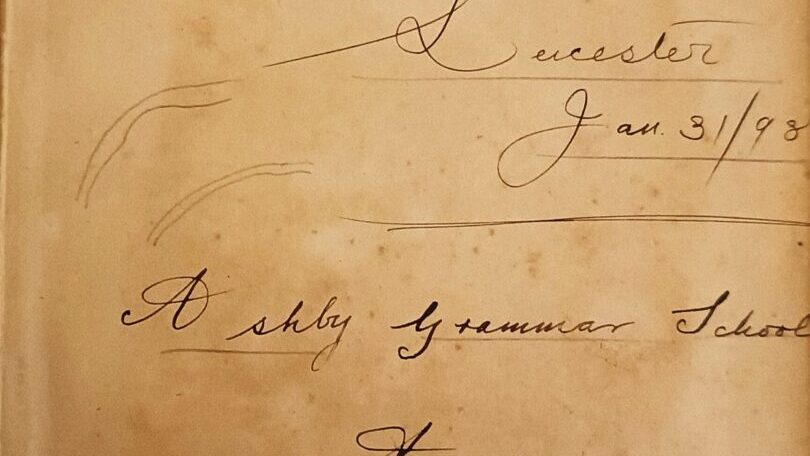 Leicester
Jan. 31/93
Ashby Grammar School